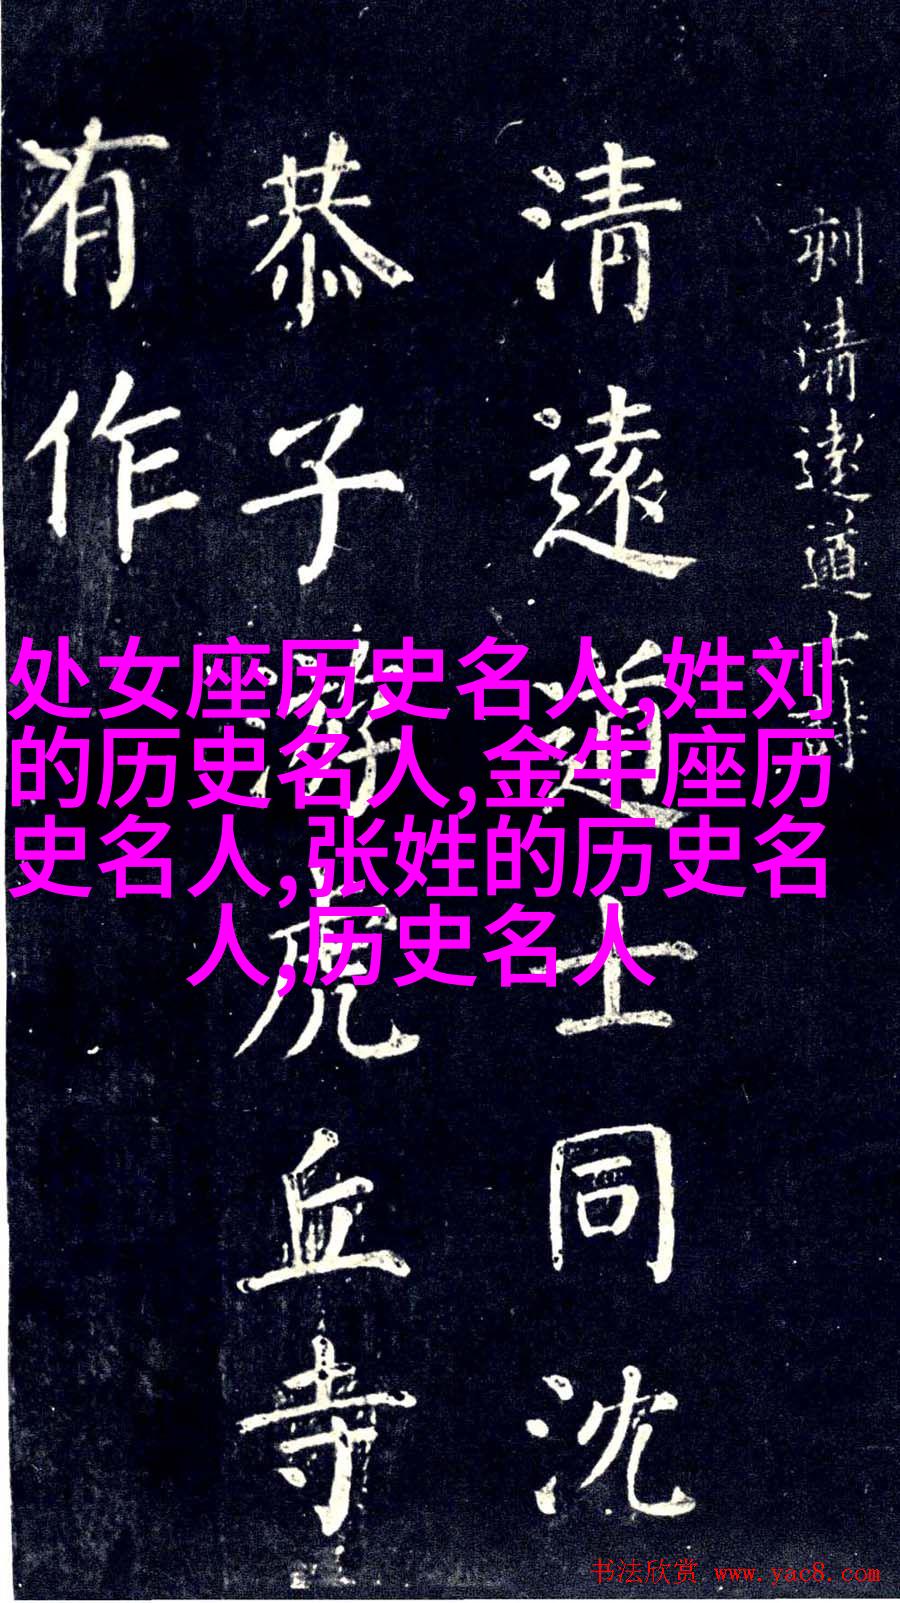 刻清遠道士詩
清遠道士同沈
恭子游虎丘寺
有作
处女座历史名人,姓刘
的历史名人,金牛座历
史名人,张姓的历史名
人,历史名人
书法欣赏 www.yac8.com